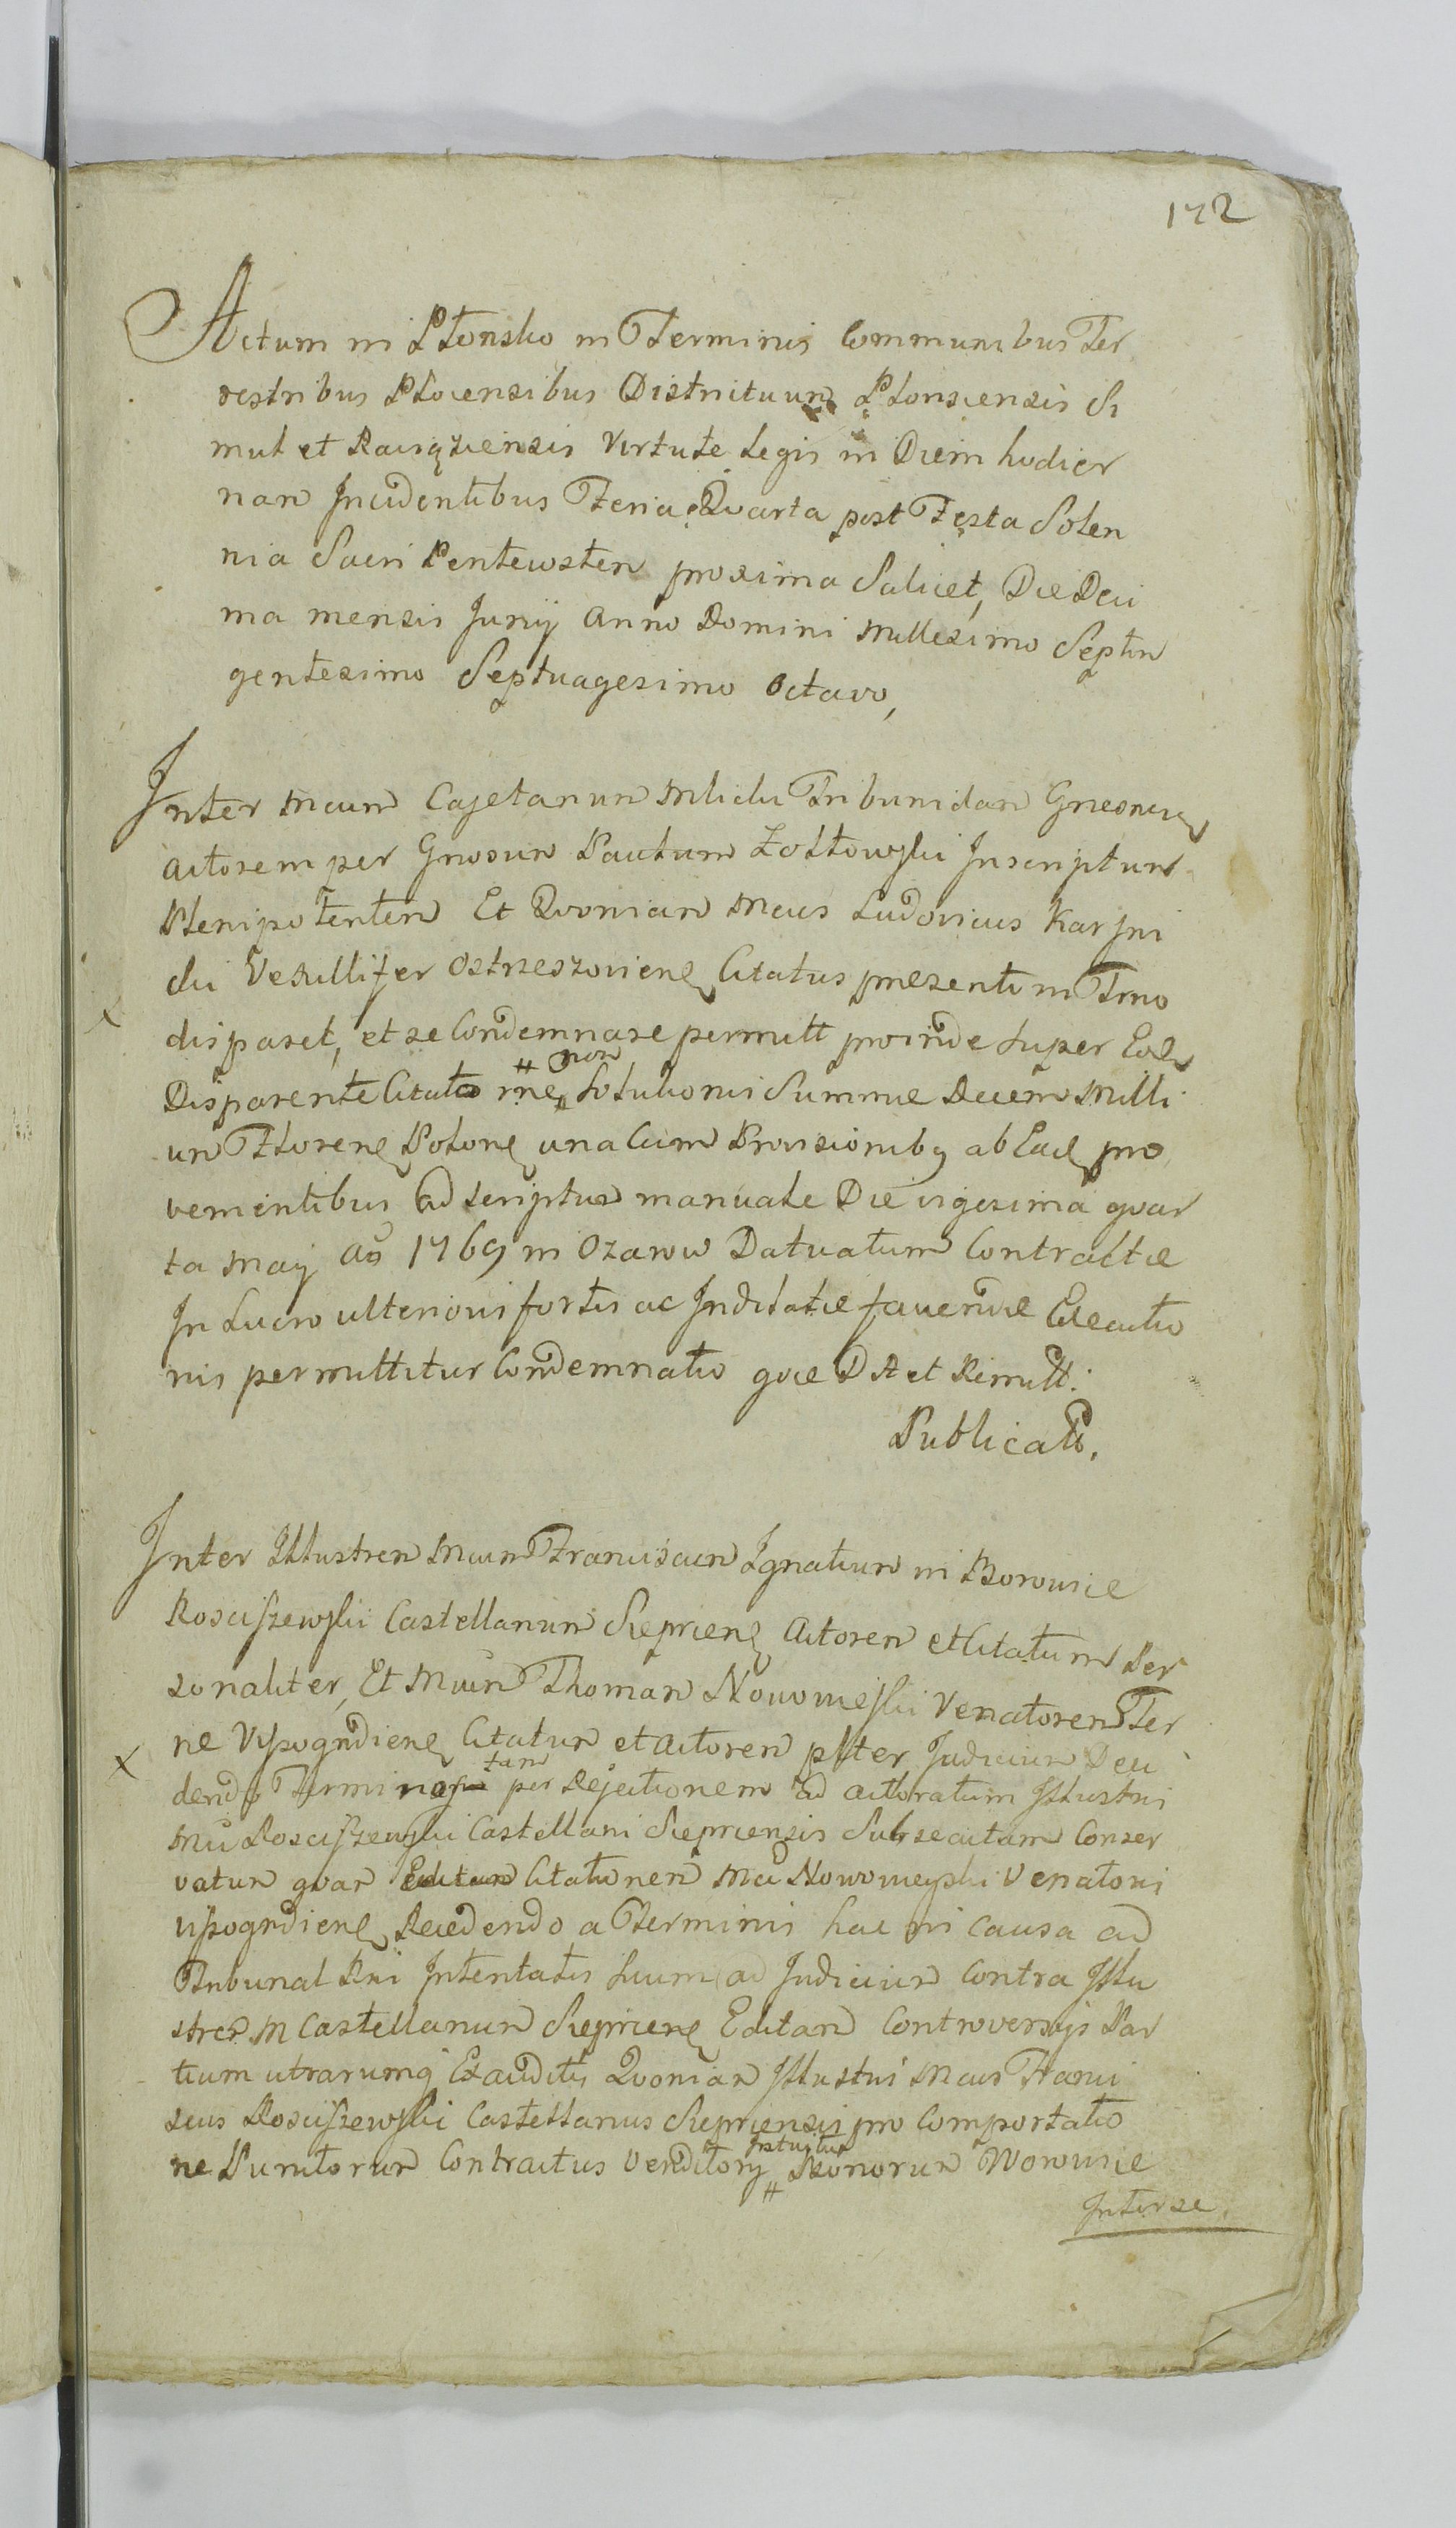 172
Actum in Płonsko in Terminis Communibus Ter
restribus Plocensibus Districtuum Plonscensis Si
mul et Raciąziensis Virtute Legis in Diem hodier
nam Incidentibus Feria Qvarta post Festa Solen
nia Sacri Pentecosten proxima Scilicet, Die Deci
ma mensis Junij Anno Domini Millesimo Septin
gentesimo Septuagesimo Octavo,
Inter Mcum Cajetanum Mlicki Tribunidam
Actorem per Gnosum Paulum Żołtowski Inscriptum
Plenipotentem Et Qvoniam Mcus Ludovicus Karſni
cki Vexillifer Ostrzeszoviens Citatus presenti in Trno
disparet, et se Condemnare permitt proinde super Eod
Disparente Citato rne # non Solutionis Summae Decem Milli
um Florens Polons una Cum Provisionibq ab Ead pro
venientibus ad scriptum manuale Die vigesima qvar
ta May Ao 1769 in Ozarow Datuatum Contractae
In Lucro ulterioris fortis ac Indilatae favendae Executio
nis permittitur Condemnatio qvae DA et Rimitt:
Publicato.
Inter Illustrem Mcum Franciscum Ignatium in Borowice
Rosciſzewſki Castellanum Sieprcens Actorem et Citatum Per
sonaliter, Et Mcum Thomam Nowomieſki Venatorem Ter
rae Vyſzogrdiens Citatum et Actorem plter Judicium Deci
dendo Termin tam per Rejectionem ad Actoratum Illustris
Mci Rosciſzewſki Castellani Sieprcensis Subsecutam Conser
vatum qvam Editam Citationem Mci Nowomieyski Venatoris
Vyſzogrdiens Recedendo a Terminis hac in causa ad
Tribunal Rni Intentatis Suum ad Judicium Contra Illu
strem M Castellanum Sieprcens Editam Controversijs Par
tium utrarumq Exauditis Qvoniam Illustris Mcus Franci
scus Rosciſzewſki Castellanus Sieprcensis pro Comportatio
ne Punctorum Contractus Venditorij # Bonorum Worowice
Inter se